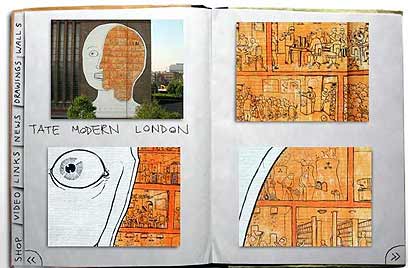 WALLS
DRAWINGS
NEWS
LINKS
VIDEO
SHOP
TATE MODERN LONDON